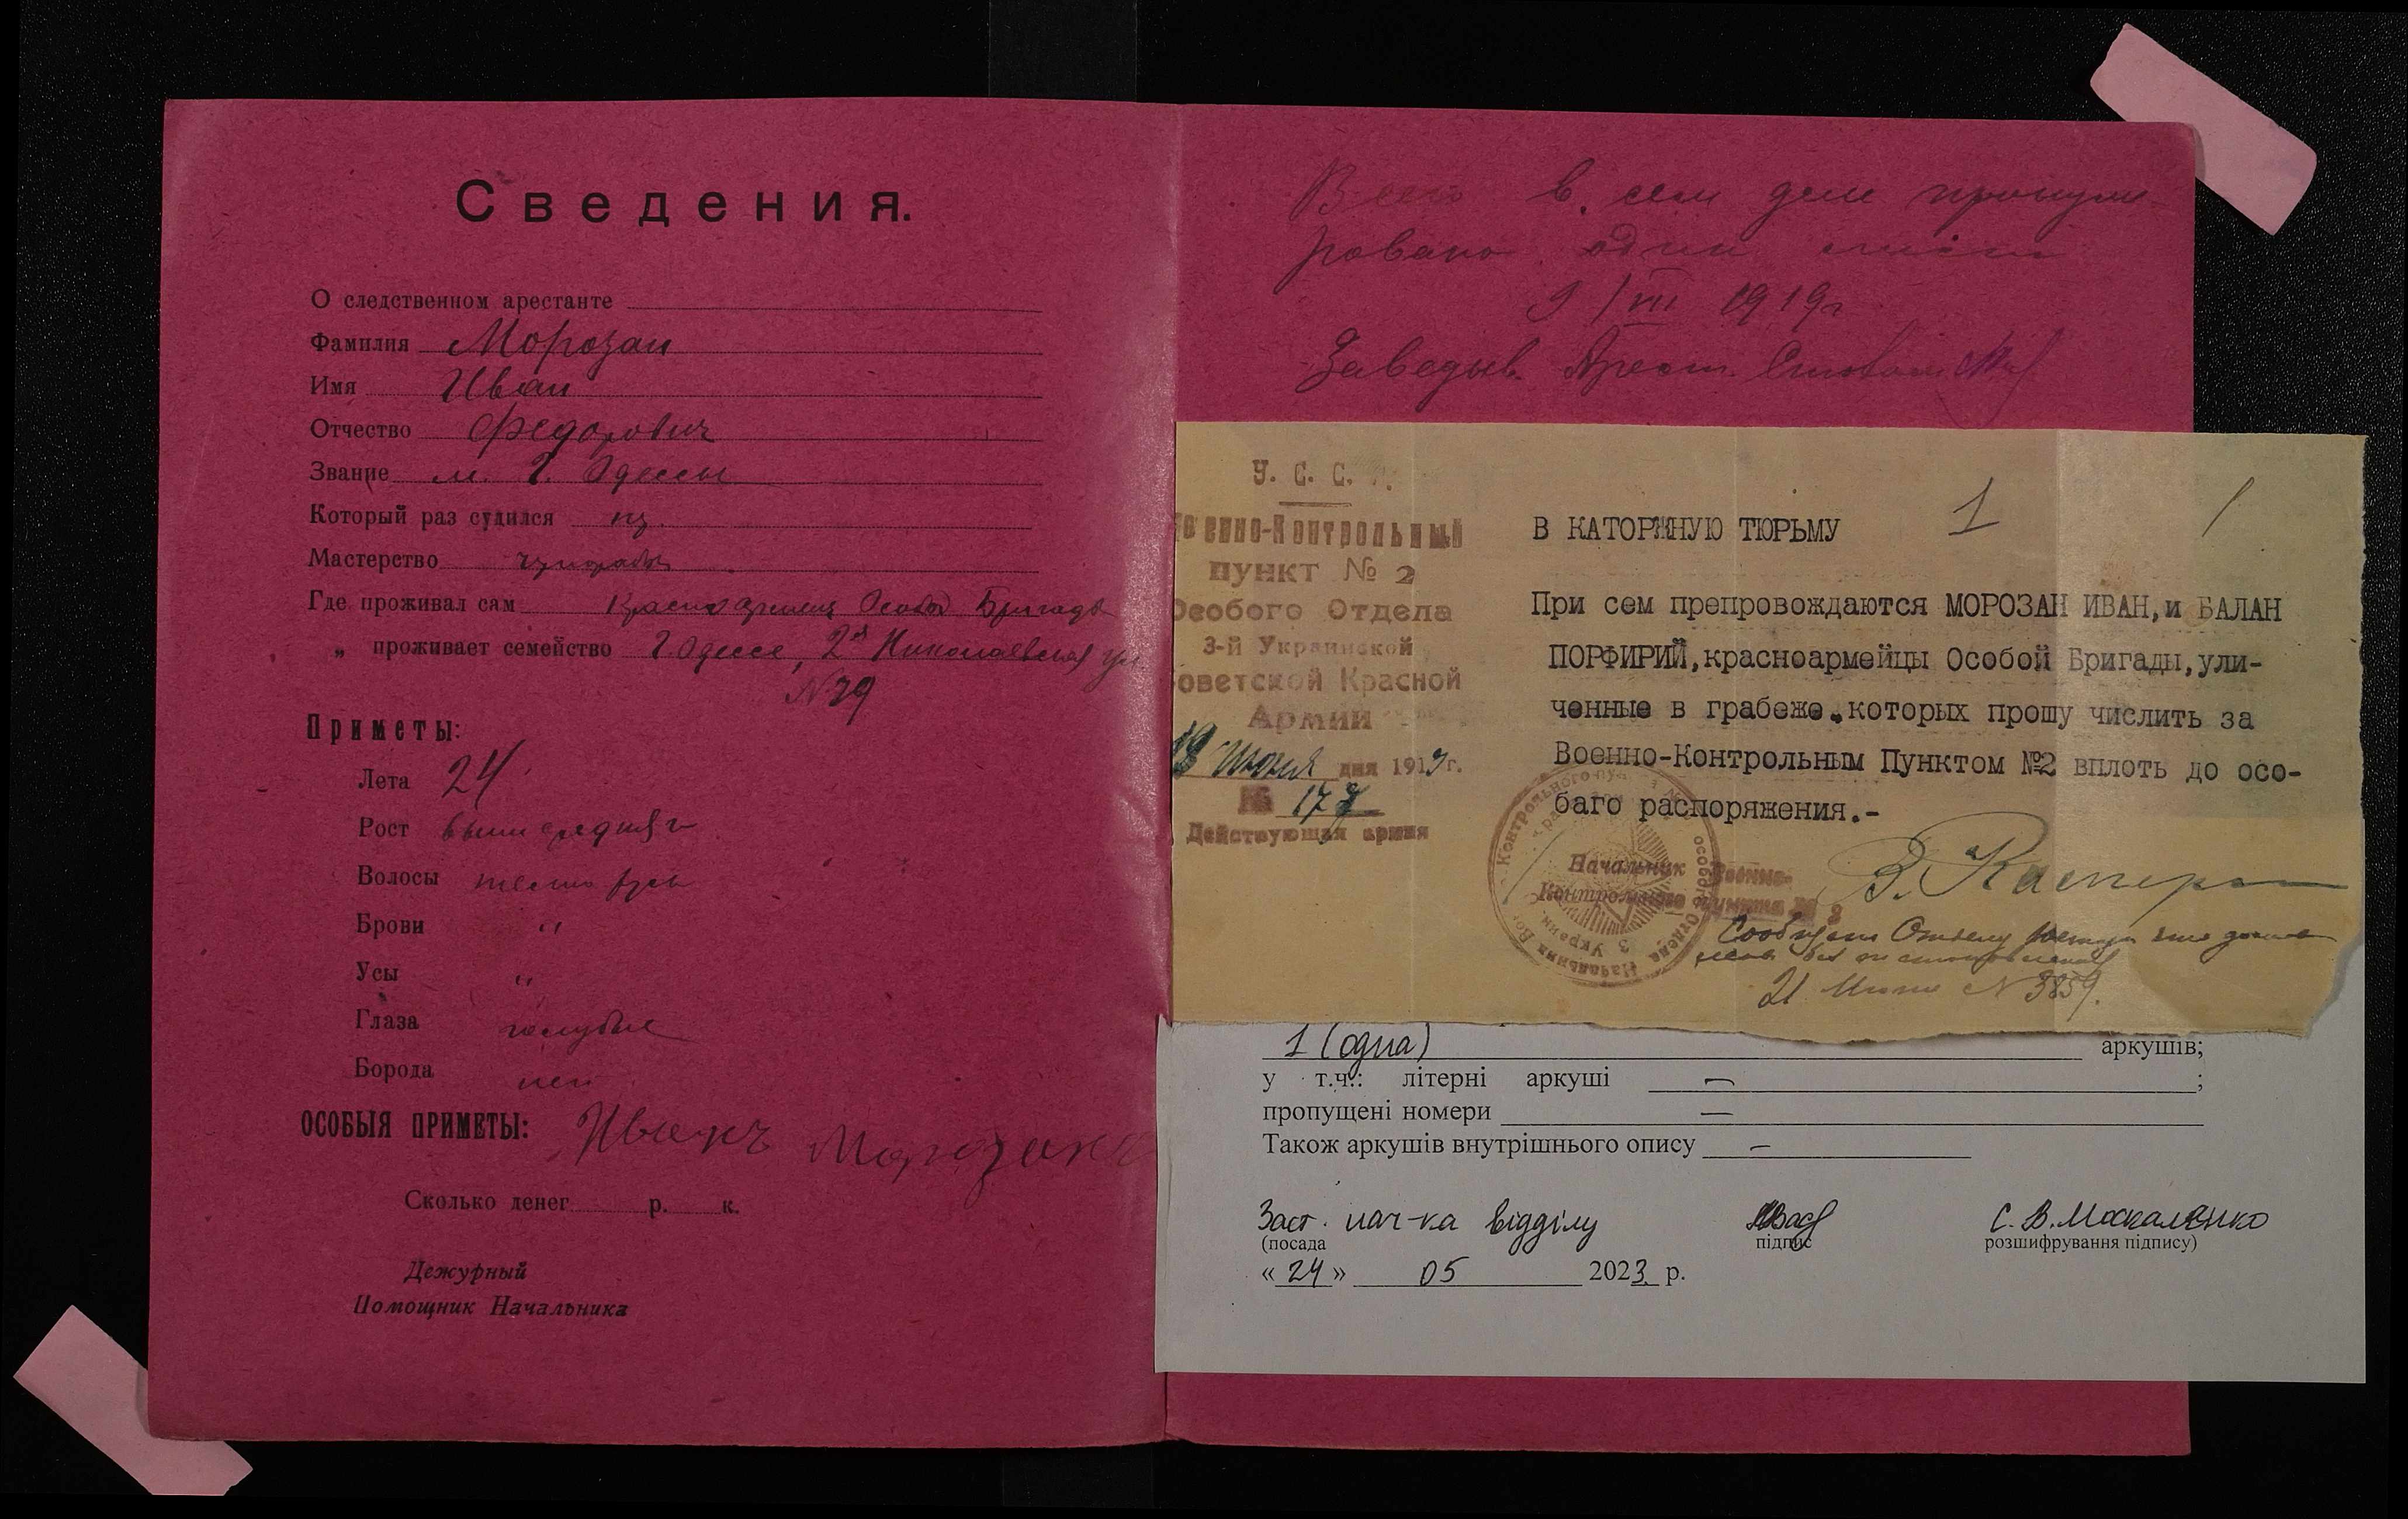 Сведения.
О следственном арестанте
Фамилия Морозан
Имя Иван
Отчество Федорович
Звание м. г. Одессы
Который раз судился
Мастерство
Где проживал сам Красноармеец Особой Бригады
„ проживает семейство г. Одессе, 2ая Николаевская ул
№ 39
Приметы:
Лета 24
Рост выше средняго
Волосы темно рус
Брови "
Усы "
Глаза голубые
Борода нет
ОСОБЫЯ ПРИМЕТЫ: Иванъ Морозанъ
Сколько денег р. к.
Дежурный
Помощник Начальника
Всего в сем деле пронуме-
ровано один лист
9/VII 1919г
Заведыв. Арест. Столом
У. С. С.
оенно-Контрольный
пункт № 2
Особого Отдела
3-й Украинской
Советской Красной
Армии
19 Июня дня 1919 г.
№ 177
Действующая армия
1 /
В КАТОРЖНУЮ ТЮРЬМУ
При сем препровождаются МОРОЗАН ИВАН, и БАЛАН
ПОРФИРИЙ, красноармейцы Особой Бригады, ули-
ченные в грабеже. которых прошу числить за
Военно-Контрольным Пунктом №2 вплоть до осо-
баго распоряжения.-
Начальник Военно-
Контрольного пункта № 2
Сообщ Отделу что
21 Июня № 3859.
1 (одна) аркушів;
у т.ч.: літерні аркуші — ;
пропущені номери —
Також аркушів внутрішнього опису —
Заст. нач-ка відділу С. В. Москаленко
(посада підпис розшифрування підпису)
« 24 » 05 2023 р.